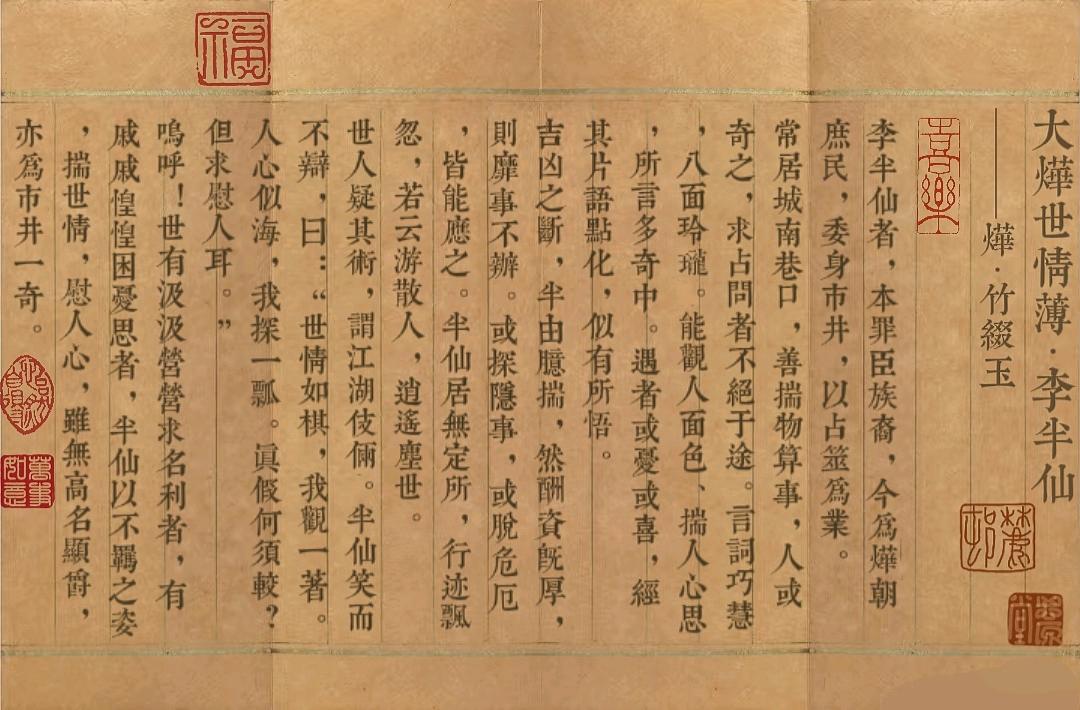 大燁世情薄·李半仙
——燁·竹綴玉
李半仙者，本罪臣族裔，今爲燁朝
庶民，委身市井，以占筮爲業。
常居城南巷口，善揣物算事，人或
奇之，求占問者不絕于途。言詞巧慧
，八面玲瓏。能觀人面色、揣人心思
，所言多奇中。遇者或憂或喜，經
其片語點化，似有所悟。
吉凶之斷，半由臆揣，然酬資旣厚，
則靡事不辦。或探隱事，或脫危厄
，皆能應之。半仙居無定所，行迹飄
忽，若云游散人，逍遙塵世。
世人疑其術，謂江湖伎倆。半仙笑而
不辯，曰：“世情如棋，我觀一著。
人心似海，我探一瓢。眞假何須較？
但求慰人耳。”
嗚呼！世有汲汲營營求名利者，有
戚戚惶惶困憂思者，半仙以不羈之姿
，揣世情，慰人心，雖無高名顯爵，
亦爲市井一奇。
福
喜樂
萬事如意